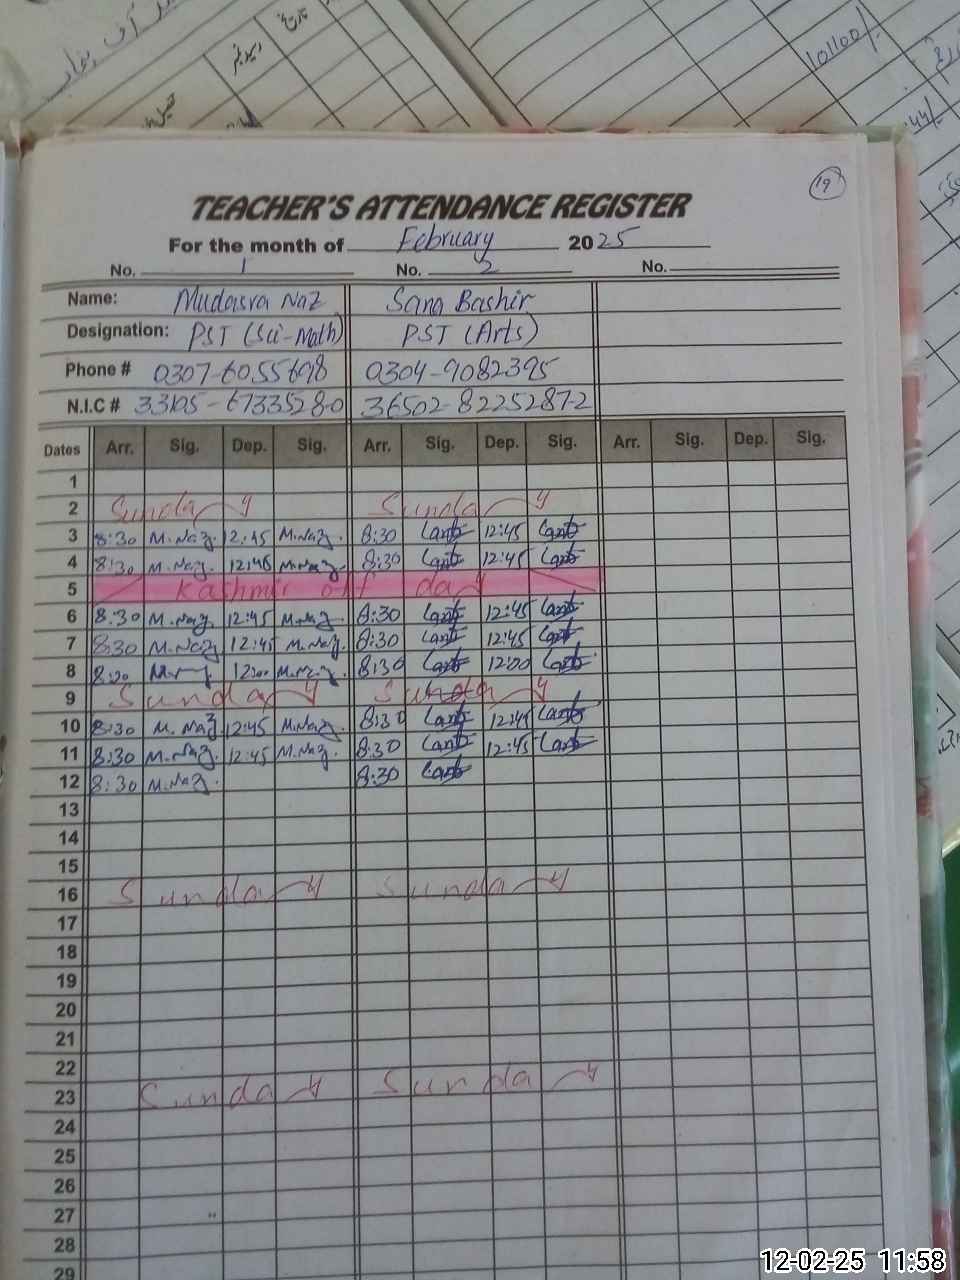 101100/-
44/-
19
TEACHER'S ATTENDANCE REGISTER
For the month of February 2025
No. 1 No. 2 No.
Name: Mudasra Naz Sana Bashir
Designation: PST (Sci-Math) PST (Arts)
Phone # 0307-6055698 0304-9082395
N.I.C # 36502-82252872
Dates Arr. Sig. Dep. Sig. Arr. Sig. Dep. Sig. Arr. Sig. Dep. Sig.
1
2 Sunday Sunday
3 8:30 M.Naz. 12:45 M.Naz. 8:30 12:45
4 8:30 M.Naz. 12:45 M.Naz. 8:30 12:45
5 Kashmir off day
6 8:30 M.Naz 12:45 M.Naz 8:30 12:45
7 8:30 M.Naz 12:45 M.Naz. 8:30 12:45
8 8:30 12:00 M.Naz. 8:30 12:00
9 Sunday Sunday
10 8:30 M. Naz 12:45 M.Naz. 8:30 12:45
11 8:30 M.Naz. 12:45 M.Naz. 8:30 12:45
12 8:30 M.Naz. 8:30
13
14
15
16 Sunday Sunday
17
18
19
20
21
22
23 Sunday Sunday
24
25
26
27
28
29
12-02-25 11:58